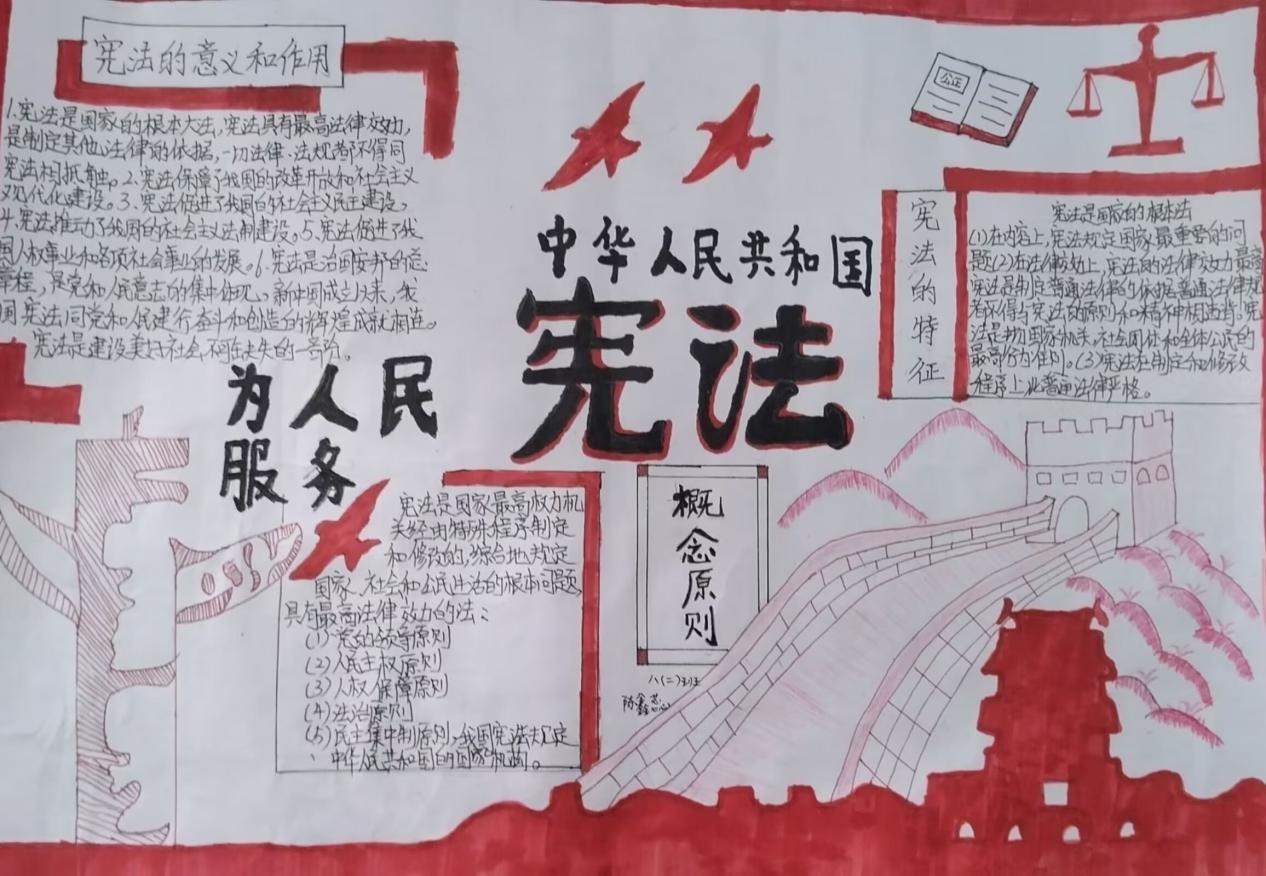 宪法的意义和作用
1.宪法是国家的根本大法,宪法具有最高法律效力,
是制定其他法律的依据,一切法律、法规都不得同
宪法相抵触。2.宪法保障了我国的改革开放和社会主义
现代化建设。3.宪法促进了我国的社会主义民主建设。
4.宪法推动了我国的社会主义法制建设。5.宪法促进了我
国人权事业和各项社会事业的发展。6.宪法是治国安邦的总
章程,是党和人民意志的集中体现。新中国成立以来,我
国宪法同党和人民进行奋斗和创造的辉煌成就相连。
宪法是建设美好社会不可缺失的一部份。
中华人民共和国
宪法
为人民
服务
公正
宪法的特征
宪法是国家的根本法
(1)在内容上,宪法规定国家最重要的问
题(2)在法律效力上,宪法的法律效力最高
宪法是制定普通法律的依据普通法律规
都不得与宪法的原则和精神相违背。宪
法是一切国家机关、社会团体和全体公民的
最高行为准则。(3)宪法在制定和修改
程序上比普通法律严格。
宪法是国家最高权力机
关经由特殊程序制定
和修改的,综合地规定
国家、社会和公民生活的根本问题,
具有最高法律效力的法:
(1)党的领导原则
(2)人民主权原则
(3)人权保障原则
(4)法治原则
(5)民主集中制原则、我国宪法规定
中华人民共和国的国家机构。
概念原则
八(二)班
陈鑫蕊